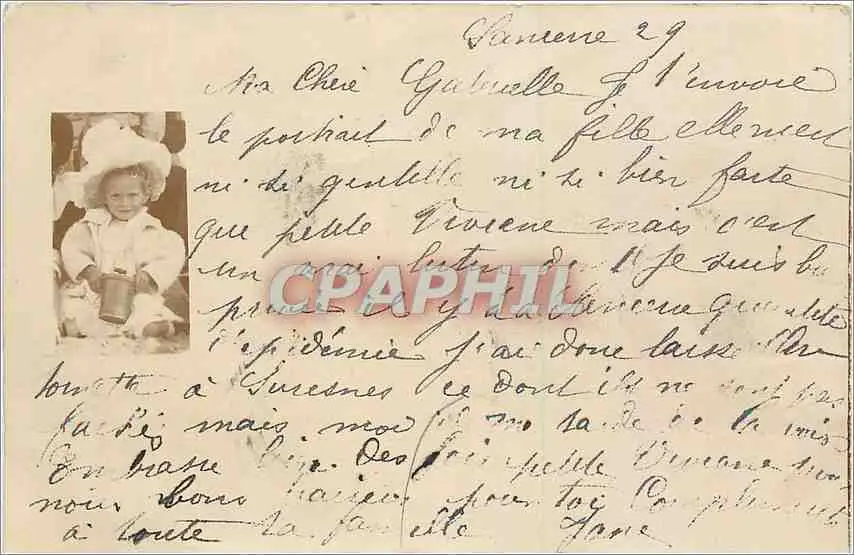 Sancerre 29
Ma Chère Gabrielle Je t'envoie
le portrait de ma fille elle n'est
ni si gentille ni si bien faite
que petite Viviane mais c'est
un vrai lutin dont je suis bien
privée il y a à Sancerre
l'épidémie j'ai donc laissé
à Suresnes ce dont ils ne sont pas
fachés mais moi il me tarde de la voir
Embrasse bien des fois petite Viviane pour
nous bons baisers pour toi Compliments
à toute ta famille Jane
CPAPHIL